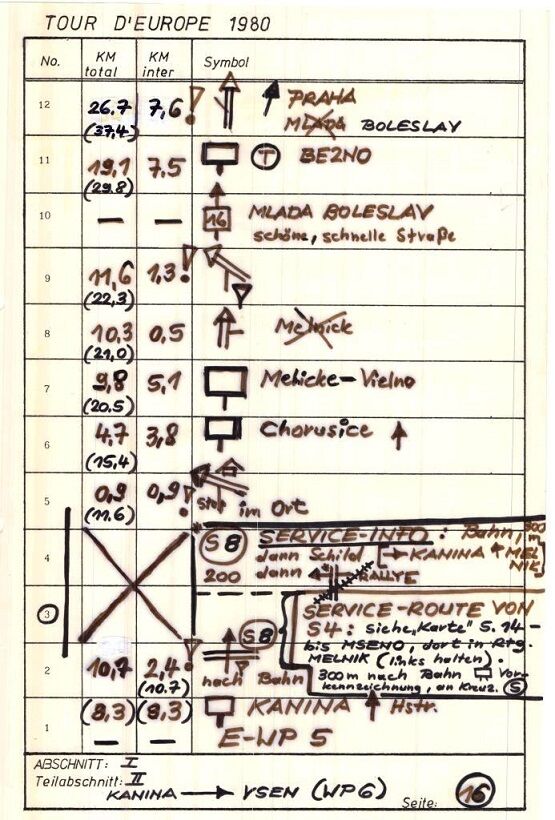 TOUR D'EUROPE 1980
No. KM total KM inter Symbol
12 26,7 (37,4) 7,6 ! PRAHA
MLADA BOLESLAV
11 19,1 (29.8) 7,5 T BEZNO
10 — — 16 MLADA BOLESLAV
schöne, schnelle Straße
9 11,6 (22,3) 1,3 !
8 10,3 (21,0) 0,5 Melnick
7 9,8 (20.5) 5,1 Melicke-Vielno
6 4,7 (15,4) 3,8 Chorusice
5 0,9 (11.6) 0,9 ! Stop im Ort
4 S8 SERVICE-INFO: Bahn, 300 m
dann Schild KANINA MELNIK
200 dann RALLYE
3 SERVICE-ROUTE VON
S4: siehe "Karte" S. 14 -
bis MSENO, dort in Rtg.
MELNIK (links halten).
300m nach Bahn Vor-
kennzeichnung, an Kreuz. S
2 10,7 2,4 (10.7) ! S8
nach Bahn
1 (8,3) (8,3) KANINA Hstr.
— — E-WP 5
ABSCHNITT: I
Teilabschnitt: II
KANINA → VSEN (WP6)
Seite: 16